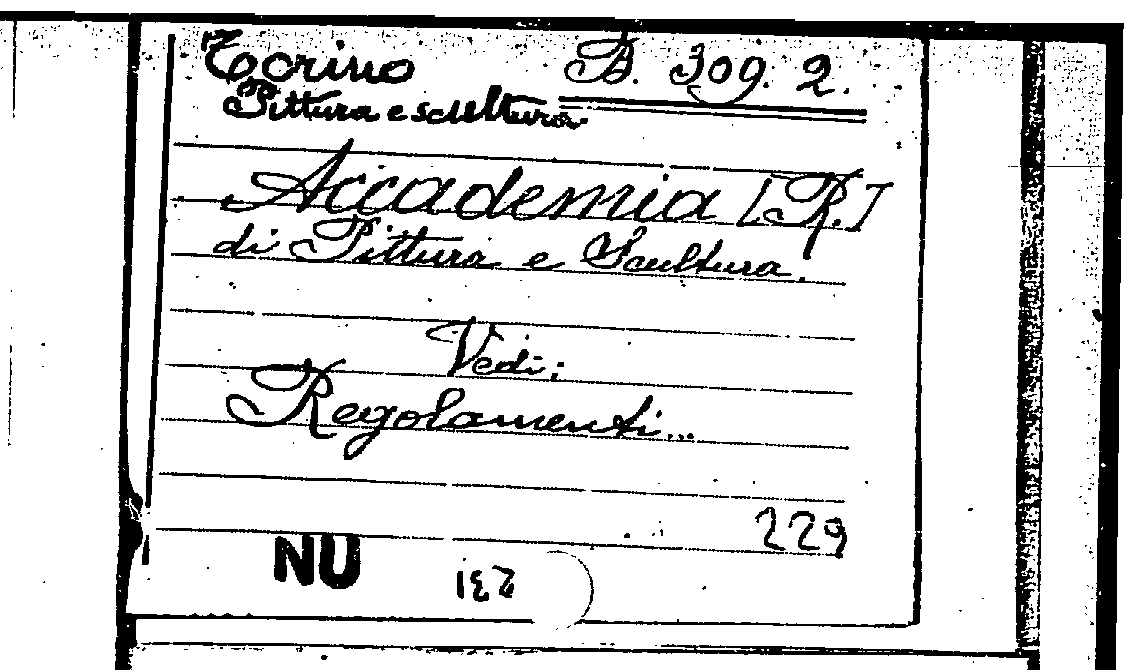 Torino B. 309. 2.
Pittura e scultura
Accademia [R.]
di Pittura e Scultura.
Vedi:
Regolamenti...
229
NU
231